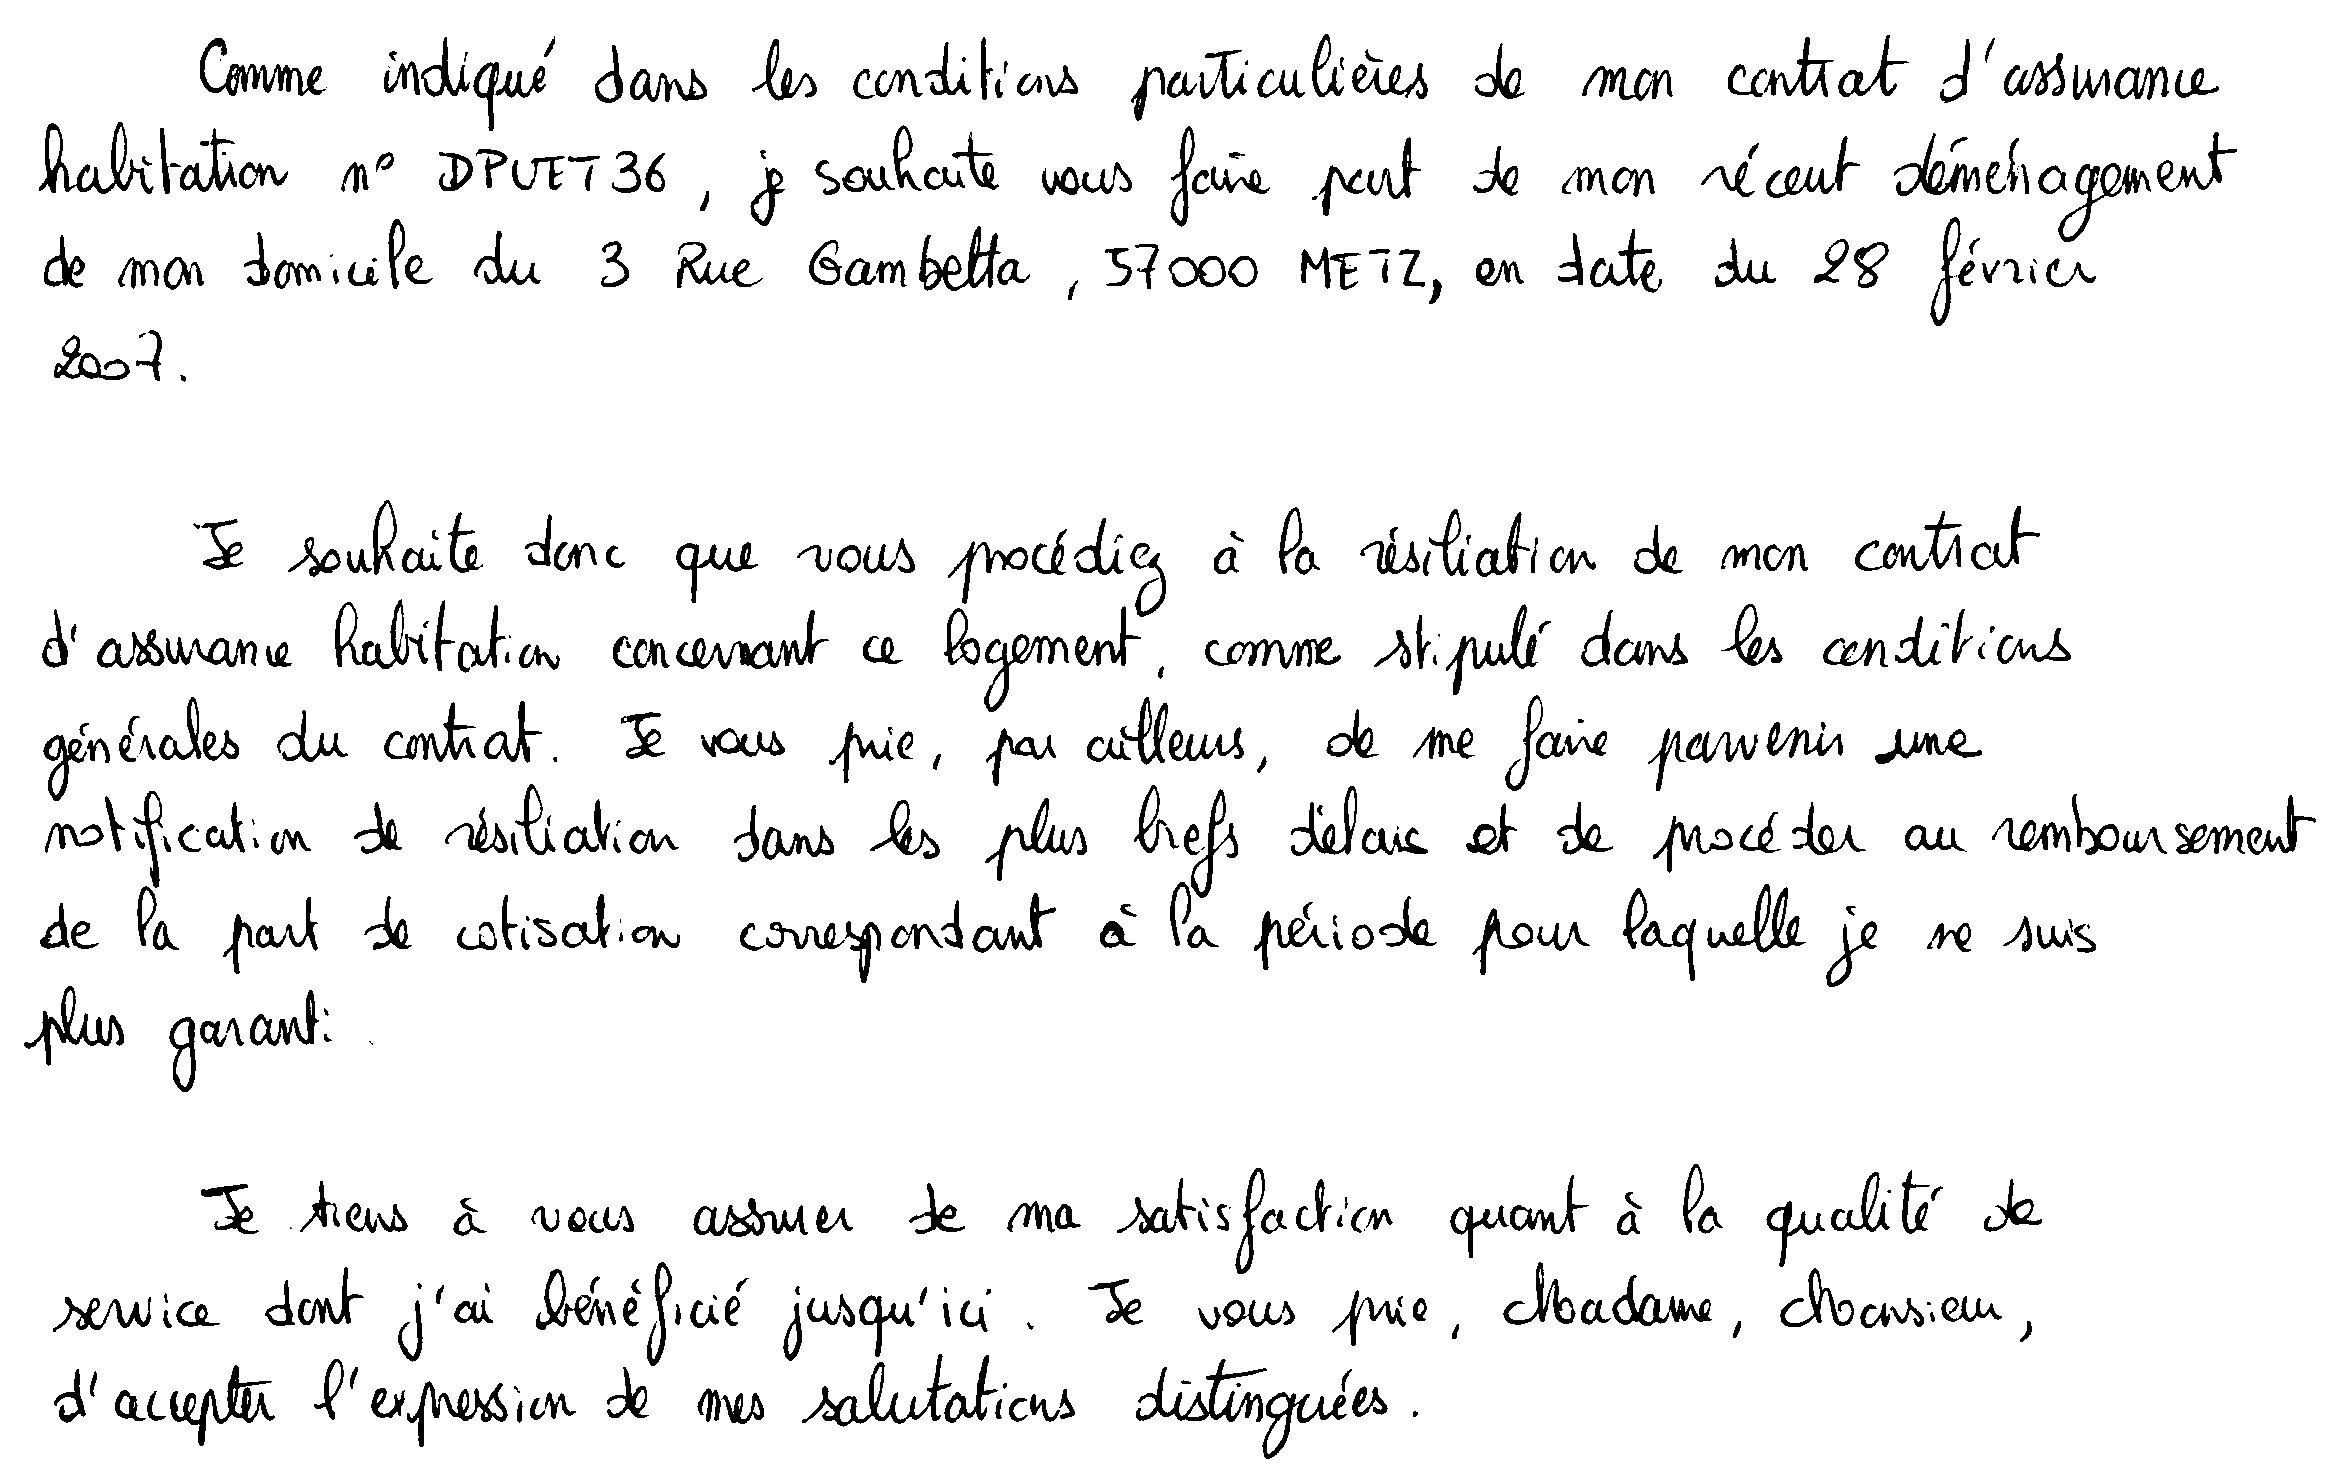 Comme indiqué dans les conditions particulières de mon contrat d'assurance
habitation n° DPUET36, je souhaite vous faire part de mon récent déménagement
de mon domicile du 3 Rue Gambetta, 57000 METZ, en date du 28 février
2007.
Je souhaite donc que vous procédiez à la résiliation de mon contrat
d'assurance habitation concernant ce logement, comme stipulé dans les conditions
générales du contrat. Je vous prie, par ailleurs, de me faire parvenir une
notification de résiliation dans les plus brefs délais et de procéder au remboursement
de la part de cotisation correspondant à la période pour laquelle je ne suis
plus garanti.
Je tiens à vous assurer de ma satisfaction quant à la qualité de
service dont j'ai bénéficié jusqu'ici. Je vous prie, Madame, Monsieur,
d'accepter l'expression de mes salutations distinguées.